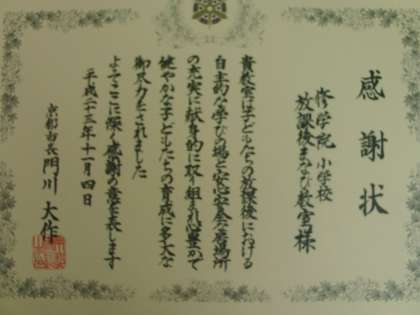 感謝状
修学院小学校
放課後まなび教室様
貴教室は子どもたちの放課後における
自主的な学びの場と安心安全な居場所
の充実に献身的に取り組まれ心豊かで
健やかな子どもたちの育成に多大な
御尽力をされました
よってここに深く感謝の意を表します
平成二十三年十一月四日
京都市長 門川大作